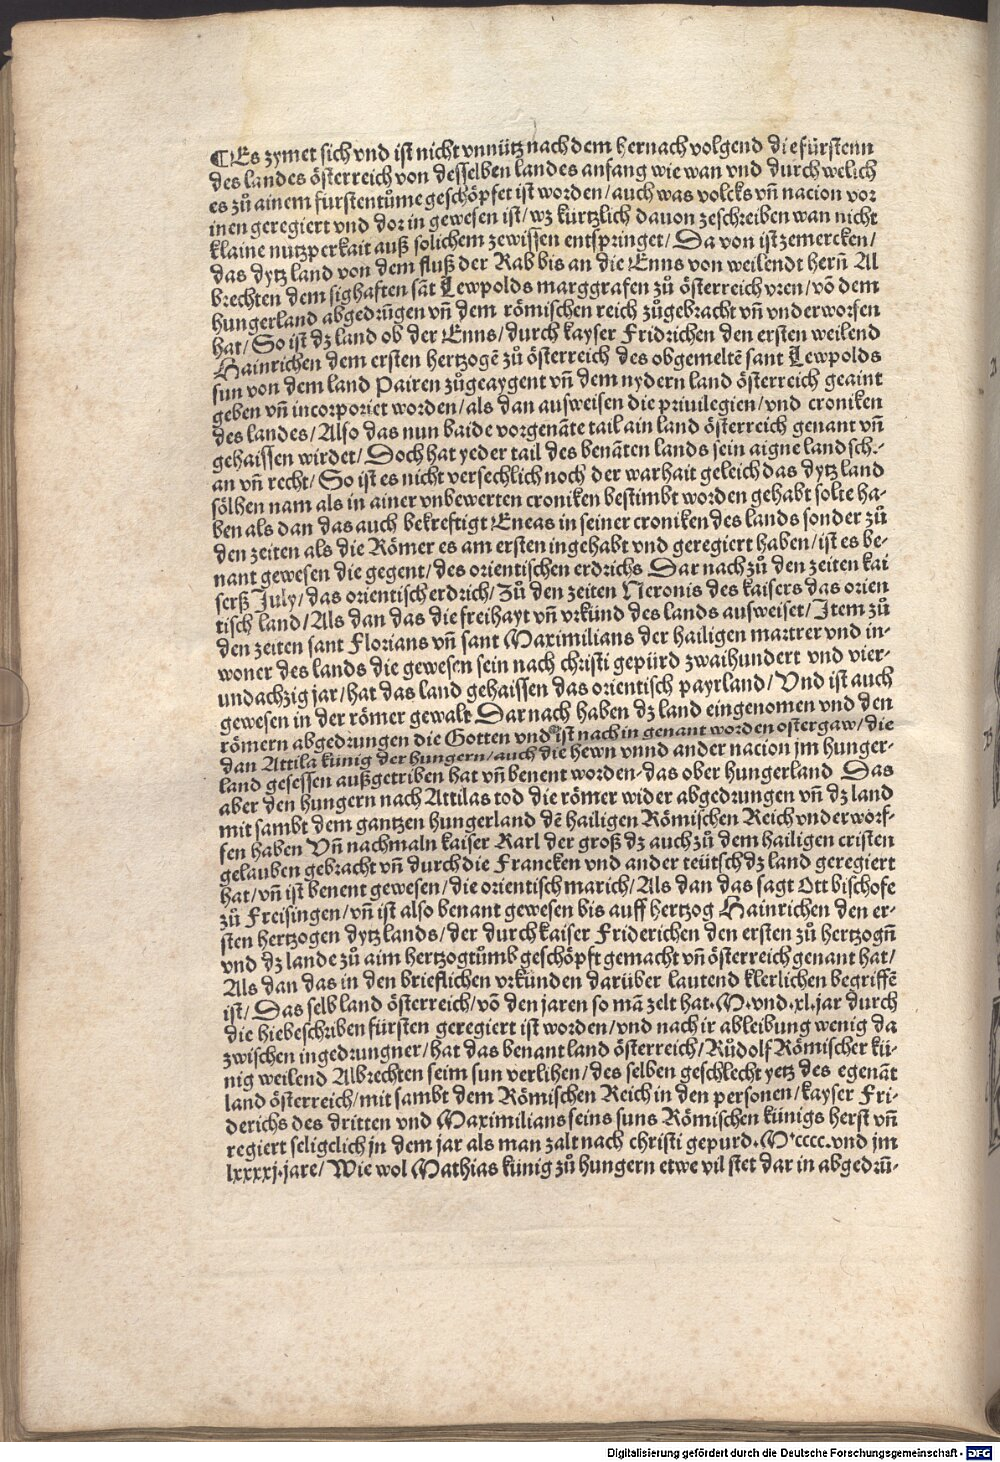 ¶Es zymet sich vnd ist nicht vnnütz nach dem hernach volgend die fürstenn
des landes österreich von desselben landes anfang wie wan vnd durch welich
es zů ainem fürstentůme geschöpfet ist worden/auch was volcks vñ nacion vor
inen geregiert vnd dor in gewesen ist/wz kürtzlich dauon zeschreiben wan nicht
klaine nutzperkait auß solichem zewissen entspringet/Da von ist zemercken/
das dytz land von dem fluß der Rab bis an die Enns von weilendt herñ Al
brechten dem sighaften sãt Lewpolds marggrafen zů österreich vren/võ dem
hungerland abgedrũgen vñ dem römischen reich zůgebracht vñ vnderworfen
hat/So ist dz land ob der Enns/durch kayser Fridrichen den ersten weilend
Hainrichen dem ersten hertzogẽ zů österreich des obgemeltẽ sant Lewpolds
sun von dem land Pairen zůgeaygent vñ dem nydern land österreich geaint
geben vñ incorporiet worden/als dan ausweisen die priuilegien/vnd croniken
des landes/Also das nun baide vorgenãte tail ain land österreich genant vñ
gehaissen wirdet/Doch hat yeder tail des benãten lands sein aigne landsch⸗
an vñ recht/So ist es nicht versechlich noch der warhait geleich das dytz land
sölhen nam als in ainer vnbewerten croniken bestimbt worden gehabt solte ha⸗
ben als dan das auch bekreftigt Eneas in seiner croniken des lands sonder zů
den zeiten als die Römer es am ersten ingehabt vnd geregiert haben/ist es be⸗
nant gewesen die gegent/des orientischen erdrichs Dar nach zů den zeiten kai
serß July/das orientisch erdrich/Zů den zeiten Neronis des kaisers das orien
tisch land/Als dan das die freihayt vñ vrkünd des lands ausweiset/Item zů
den zeiten sant Florians vñ sant Maximilians der hailigen martrer vnd in⸗
woner des lands die gewesen sein nach christi gepürd zwaihundert vnd vier⸗
undachzig jar/hat das land gehaissen das orientisch payrland/Vnd ist auch
gewesen in der römer gewalt Dar nach haben dz land eingenomen vnd den
römern abgedrungen die Gotten vnd ist nach in genant worden ostergaw/die
dan Attila künig der hungern/auch die hewn vnnd ander nacion jm hunger⸗
land gesessen außgetriben hat vñ benent worden⸗das ober hungerland Das
aber den hungern nach Attilas tod die römer wider abgedrungen vñ dz land
mit sambt dem gantzen hungerland dẽ hailigen Römischen Reich vnderworf⸗
fen haben Vñ nachmaln kaiser Karl der groß dz auch zů dem hailigen cristen
gelauben gebracht vñ durch die Francken vnd ander teütsch dz land geregiert
hat/vñ ist benent gewesen/die orientisch marich/Als dan das sagt Ott bischofe
zů Freisingen/vñ ist also benant gewesen bis auff hertzog Hainrichen den er⸗
sten hertzogen dytz lands/der durch kaiser Friderichen den ersten zů hertzogñ
vnd dz lande zů aim hertzogtůmb geschöpft gemacht vñ österreich genant hat/
Als dan das in den brieflichen vrkünden darüber lautend klerlichen begriffẽ
ist/Das selb land österreich/võ den jaren so mã zelt hat·M·vnd·xl·jar durch
die hiebeschriben fürsten geregiert ist worden/vnd nach ir ableibung wenig da
zwischen ingedrungner/hat das benant land österreich/Růdolf Römischer kü⸗
nig weilend Albrechten seim sun verlihen/des selben geschlecht yetz des egenãt
land österreich/mit sambt dem Römischen Reich in den personen/kayser Fri⸗
derichs des dritten vnd Maximilians seins suns Römischen künigs herst vñ
regiert seligelich jn dem jar als man zalt nach christi gepurd·M·cccc·vnd jm
lxxxxj·jare/Wie wol Mathias künig zů hungern etwe vil stet dar in abgedrũ⸗
Digitalisierung gefördert durch die Deutsche Forschungsgemeinschaft - DFG